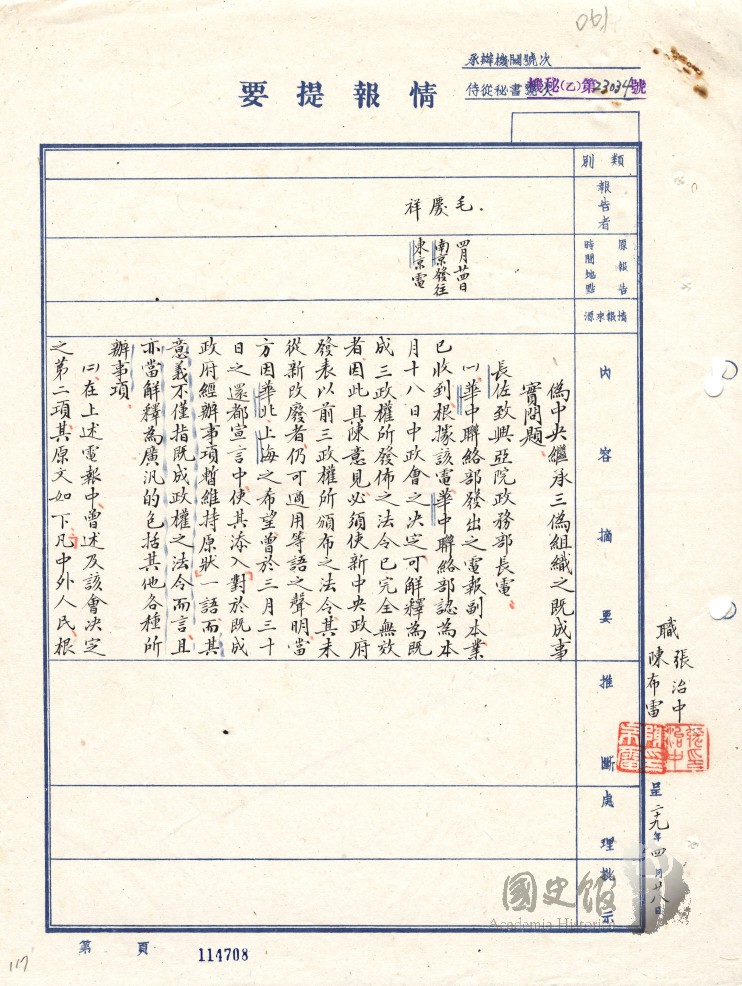 061
承辦機關號次
侍從秘書號次
機秘(乙)第23034號
情報提要
類別
報告者
毛慶祥
原報告時間地點
四月廿四日
南京發往
東京電
情報來源
內容摘要
偽中央繼承三偽組織之既成事
實問題
長佐致興亞院政務部長電
㈠華中聯絡部發出之電報副本業
已收到根據該電華中聯絡部認為本
月十八日中政會之決定可解釋為既
成三政權所發佈之法令已完全無效
者因此具陳意見必須使新中央政府
發表以前三政權所頒布之法令其未
從新改廢者仍可適用等語之聲明當
方因華北上海之希望曾於三月三十
日之還都宣言中使其添入對於既成
政府經辦事項暫維持原狀一語而其
意義不僅指既成政權之法令而言且
亦當解釋為廣汎的包括其他各種所
辦事項
㈡在上述電報中曾述及該會決定
之第二項其原文如下凡中外人民根
推斷
處理
批示
職
張治中
陳布雷
呈 二十九年四月廿八日
國史館
Academia Historica
第 頁
114708
117